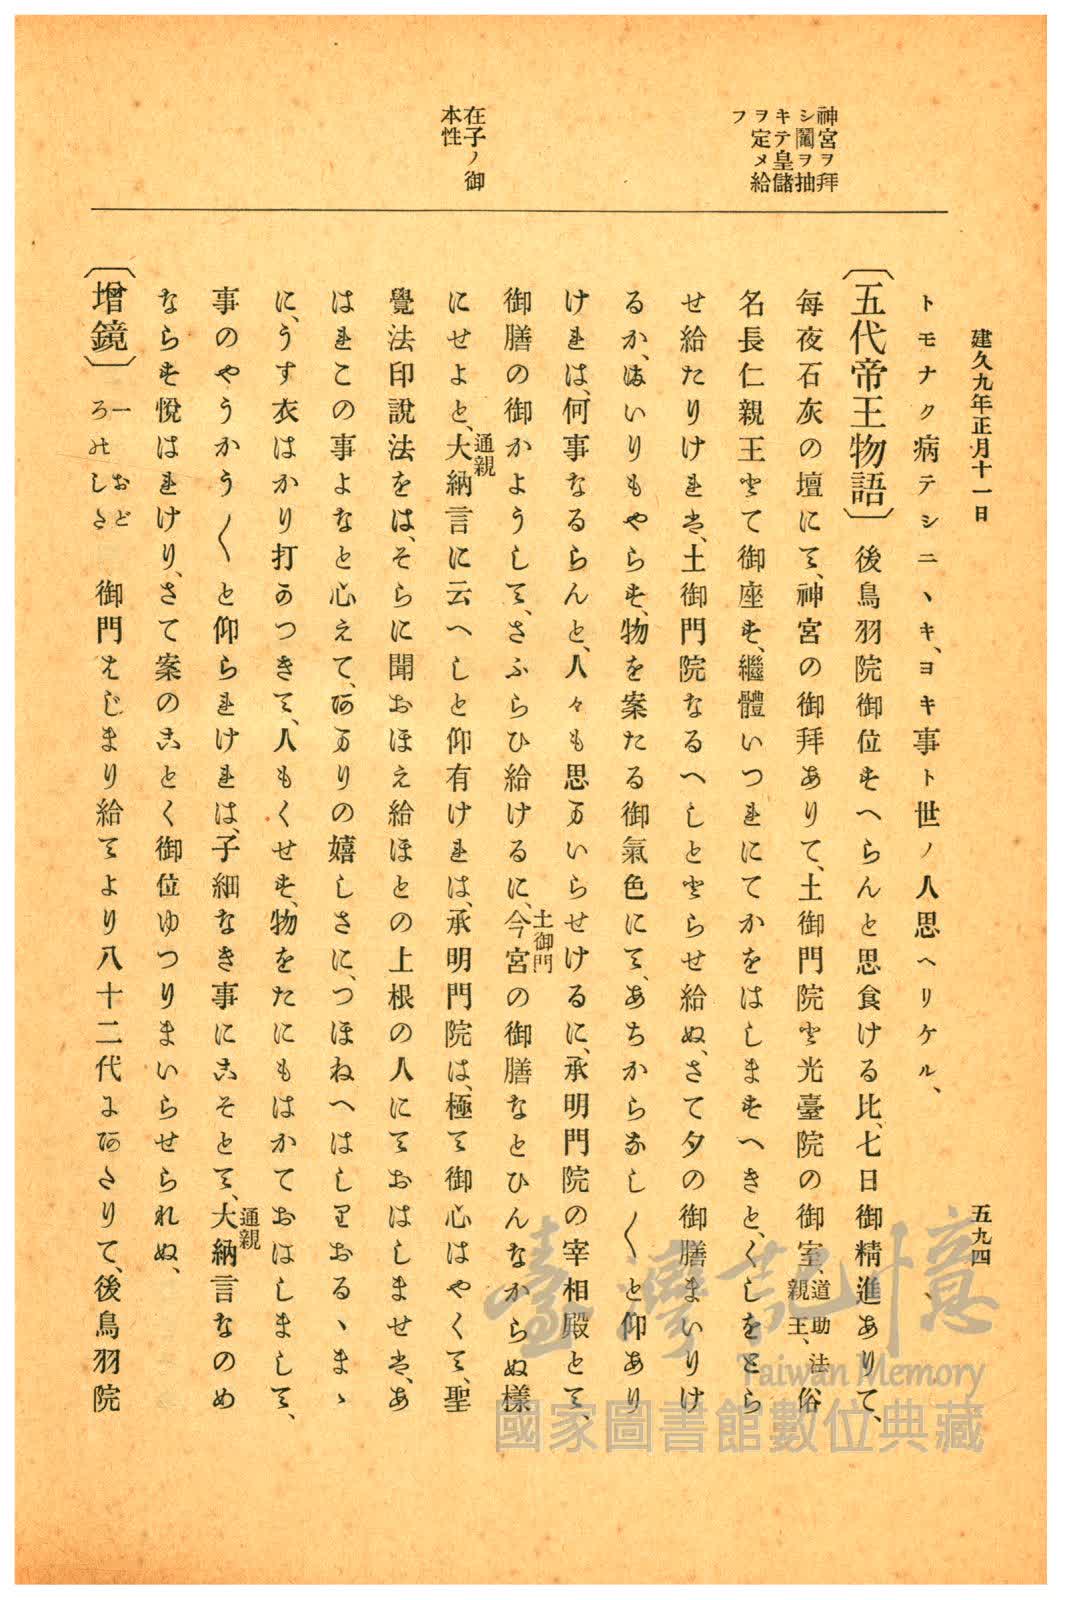 建久九年正月十一日
五九四
神宮ヲ拜
シ鬮ヲ抽
キテ皇儲
ヲ定メ給
フ
在子ノ御
本性
トモナク病テシニヽキ、ヨキ事ト世ノ人思ヘリケル、
〔五代帝王物語〕後鳥羽院御位すへらんと思食ける比、七日御精進ありて、
每夜石灰の壇にて、神宮の御拜ありて、土御門院と光臺院の御室、道助親王、法俗
名長仁親王とて御座す、繼體いつれにてかをはしますへきと、くしをとら
せ給たりけれは、土御門院なるへしととらせ給ぬ、さて夕の御膳まいりけ
るか、はいりもやらす、物を案たる御氣色にて、あちからなし〱と仰あり
けれは、何事なるらんと、人々も思まいらせけるに、承明門院の宰相殿とて、
御膳の御かようして、さふらひ給けるに、今宮土御門の御膳なとひんなからぬ樣
にせよと、大納言通親に云へしと仰有けれは、承明門院は、極て御心はやくて、聖
覺法印說法をは、そらに聞おほえ給ほとの上根の人にておはしませは、あ
はれこの事よなと心えて、あまりの嬉しさに、つほねへはしりおるヽまヽ
に、うす衣はかり打かつきて、人もくせす、物をたにもはかておはしまして、
事のやうかう〱と仰られけれは、子細なき事にこそとて、大納言通親なのめ
ならす悅はれけり、さて案のことく御位ゆつりまいらせられぬ、
〔增鏡〕一おどろのした 御門はじまり給てより八十二代にあたりて、後鳥羽院
臺灣記憶
Taiwan Memory
國家圖書館數位典藏